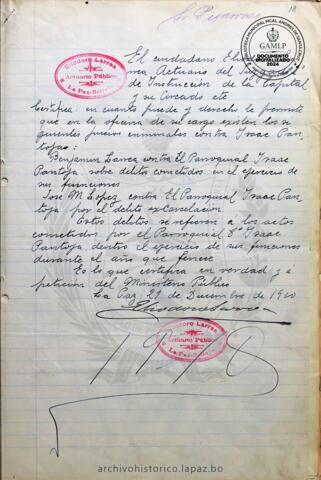 Sr Pizarroso
18
BIBLIOTECA MUNICIPAL MCAL. ANDRES DE SANTA CRUZ
GAMLP
DOCUMENTO DIGITALIZADO
2024
Eliodoro Larrea
Actuario Público
La Paz-Bolivia
El ciudadano Eliodoro
rrea Actuario del
de Instrucción de la Capital
y su Cercado etc
Certifica: en cuanto puede y derecho le permite
que en la oficina de su cargo existen los si
guientes juicios criminales contra Isaac Pan
toja:
Benjamin Larrea contra El Parroquial Isaac
Pantoja, sobre delitos cometidos en el ejercicio de
sus funciones
José M. López contra El Parroquial Isaac Pan
toja por el delito
Estos delitos se refieren a los actos
cometidos por el Parroquial Dn Isaac
Pantoja, dentro el ejercicio de sus funciones
durante el año que fenece
Es lo que certifica en verdad y a
petición del Ministerio Público
La Paz, 21 de Diciembre de 1920
Eliodoro Larrea
Eliodoro Larrea
Actuario Público
La Paz-Bolivia
archivohistorico.lapaz.bo